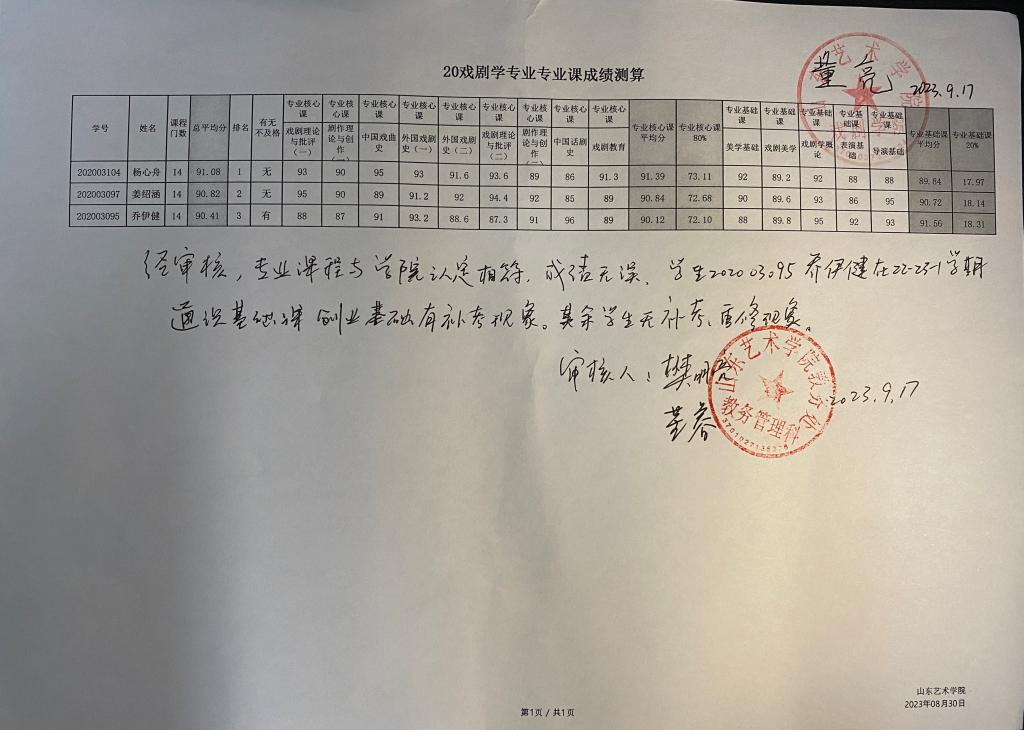 20戏剧学专业专业课成绩测算
董亮 2023.9.17
学号 姓名 课程门数 总平均分 排名 有无不及格 专业核心课 专业核心课 专业核心课 专业核心课 专业核心课 专业核心课 专业核心课 专业核心课 专业核心课 专业核心课平均分 专业核心课80% 专业基础课 专业基础课 专业基础课 专业基础课 专业基础课 专业基础课平均分 专业基础课20%
戏剧理论与批评（一） 剧作理论与创作（一） 中国戏曲史 外国戏剧史（一） 外国戏剧史（二） 戏剧理论与批评（二） 剧作理论与创作（二） 中国话剧史 戏剧教育 美学基础 戏剧美学 戏剧学概论 表演基础 导演基础
202003104 杨心舟 14 91.08 1 无 93 90 95 93 91.6 93.6 89 86 91.3 91.39 73.11 92 89.2 92 88 88 89.84 17.97
202003097 姜绍涵 14 90.82 2 无 95 90 89 91.2 92 94.4 92 85 89 90.84 72.68 90 89.6 93 86 95 90.72 18.14
202003095 乔伊健 14 90.41 3 有 88 87 91 93.2 88.6 87.3 91 96 89 90.12 72.10 88 89.8 95 92 93 91.56 18.31
经审核，专业课程与学院认定相符，成绩无误，学生202003095 乔伊健在22-23-1学期
通识基础课 创业基础有补考现象。其余学生无补考、重修现象。
审核人：樊明亮
2023.9.17
山东艺术学院教务处
教务管理科
山东艺术学院
2023年08月30日
第1页 / 共1页